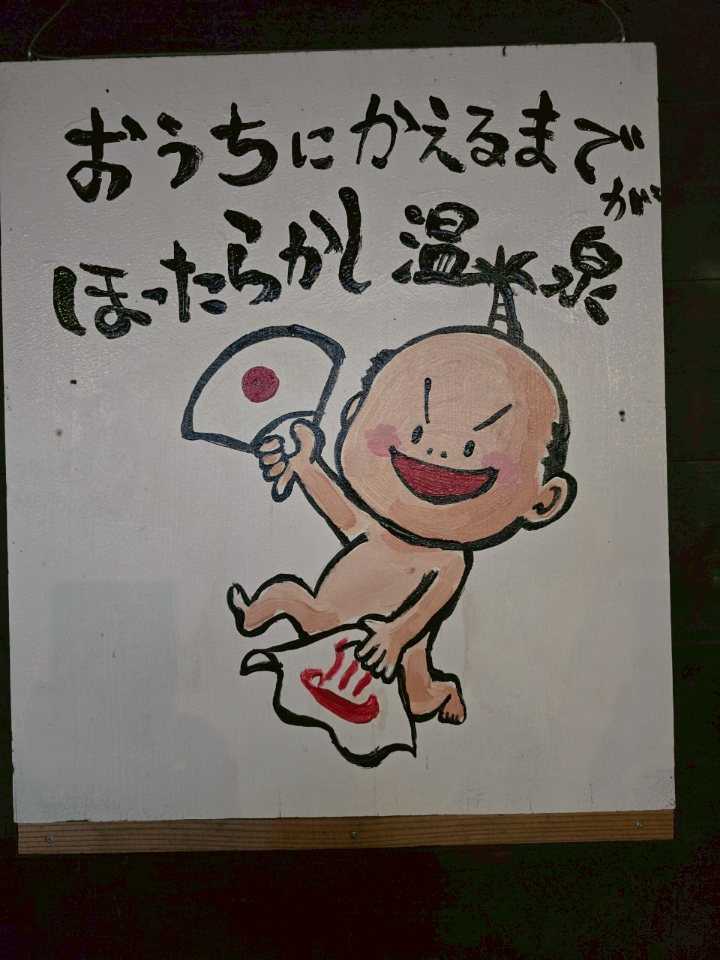 おうちにかえるまでが
ほったらかし温泉